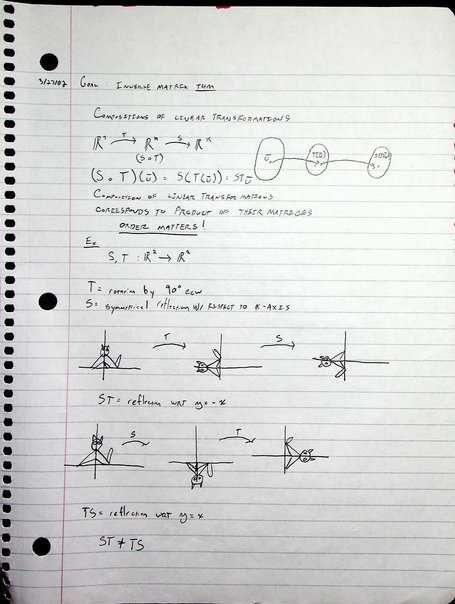 3/27/07 GOAL: INVERSE MATRIX THM
COMPOSITIONS OF LINEAR TRANSFORMATIONS
ℝⁿ →T ℝᵐ →S ℝᵏ
(S∘T)
(S∘T)(ū) = S(T(ū)) = STū
ū T(ū)
COMPOSITION OF LINEAR TRANSFORMATIONS
CORRESPONDS TO PRODUCT OF THEIR MATRICES
ORDER MATTERS!
Ex
S, T : ℝ² → ℝ²
T = rotation by 90° ccw
S = symmetrical reflection W/ RESPECT TO X-AXIS
T S
ST = reflection WRT y = -x
S T
TS = reflection WRT y = x
ST ≠ TS